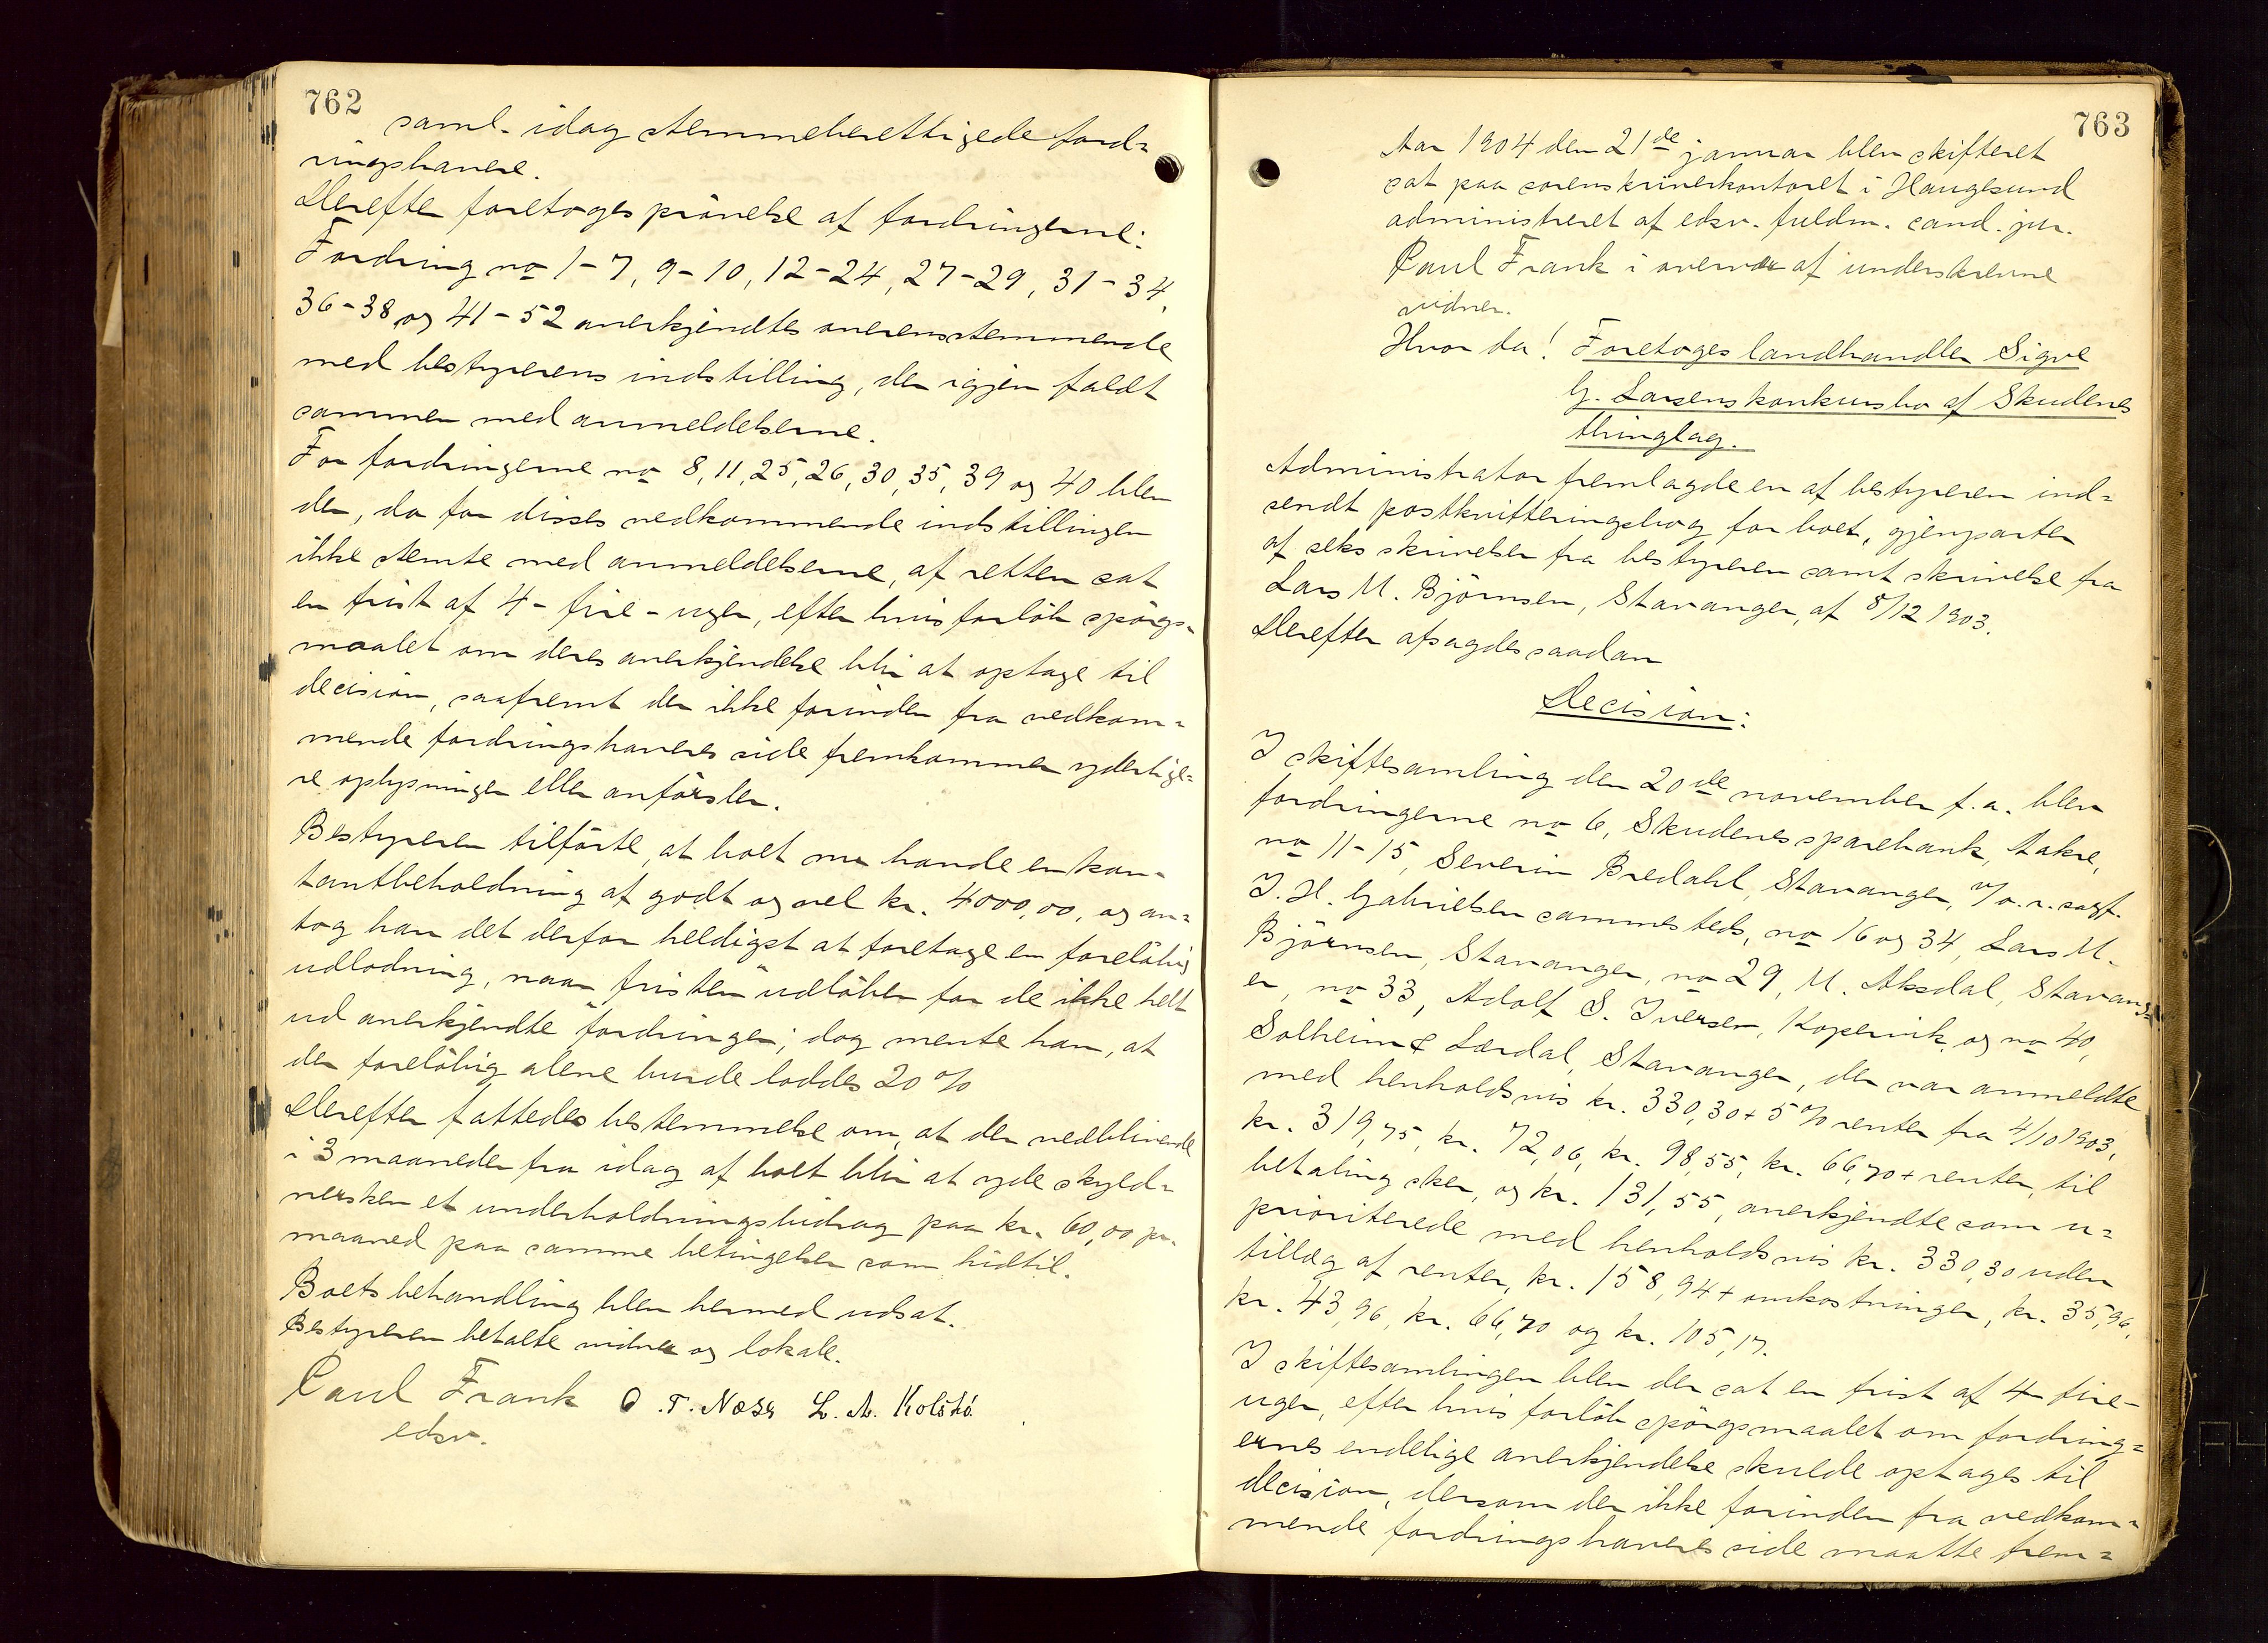 762
saml. idag stemmeberettigede ford=
ringshavere.
Derefter foretoges prövelse af fordringerne:
Fordring no 1-7, 9-10, 12-24, 27-29, 31-34,
36-38 og 41-52 anerkjendtes overensstemmende
med bestyrerens indstilling, der igjen faldt
sammen med anmeldelserne.
For fordringerne no 8, 11, 25, 26, 30, 35, 39 og 40 blev
der, da for disses vedkommende indstillingen
ikke stemte med anmeldelserne, af retten sat
en frist af 4 - fire - uger, efter hvis forlöb spörgs=
maalet om deres anerkjendelse blir at optage til
decision, saafremt der ikke forinden fra vedkom=
mende fordringshaveres side fremkommer yderlige=
re oplysninger eller anförsler.
Bestyreren tilförte, at boet nu havde en kon=
tantbeholdning af godt og vel kr. 4000,00, og an=
tog han det derfor heldigst at foretage en forelöbig
udlodning, naar fristen udlöber for de ikke helt
ud anerkjendte fordringer; dog mente han, at
der forelöbig alene burde loddes 20 %
Derefter fattedes bestemmelse om, at der vedblivende
i 3 maaneder fra idag af boet blir at yde skyld=
nersken et underholdningsbidrag paa kr. 60,00 pr.
maaned paa samme betingelser som hidtil.
Boets behandling blev hermed udsat.
Bestyreren betalte vidner og lokale.
Paul Frank O. T. Næss L. A. Kolstö.
edsv.
763
Aar 1904 den 21de januar blev skifteret
sat paa sorenskriverkontoret i Haugesund
administreret af edsv. fuldm. cand. jur.
Paul Frank i overvær af underskrevne
vidner.
Hvor da! Foretoges landhandler Sigve
G. Larsens konkursbo af Skudenes
thinglag.
Administrator fremlagde en af bestyreren ind=
sendt postkvitteringsbog for boet, gjenparter
af seks skrivelser fra bestyreren samt skrivelse fra
Lars M. Björnsen, Stavanger, af 8/12 1903.
Derefter afsagdes saadan
Decision:
I skiftesamling den 20de november f.a. blev
fordringerne no 6, Skudenes sparebank, Aakre,
no 11-15, Severin Bredahl, Stavanger, v/o.r.sagf.
J. H. Gabrielsen sammesteds, no 16 og 34, Lars M.
Björnsen, Stavanger, no 29, M. Aksdal, Stavang=
er, no 33, Adolf S. Iversen, Kopervik, og no 40,
Solheim & Lærdal, Stavanger, der var anmeldte
med henholdsvis kr. 330,30 + 5 % renter fra 4/10 1903,
kr. 319,75, kr. 72,06, kr. 98,55, kr. 66,70 + renter, til
betaling sker, og kr. 131,55, anerkjendte som u=
prioriterede med henholdsvis kr. 330,30 uden
tillæg af renter, kr. 158,94 + omkostninger, kr. 35,96,
kr. 43,96, kr. 66,70 og kr. 105,17.
I skiftesamlingen blev der sat en frist af 4 fire-
uger, efter hvis forlöb spörgsmaalet om fordring=
ernes endelige anerkjendelse skulde optages til
decision, dersom der ikke forinden fra vedkom=
mende fordringshaveres side maatte frem=